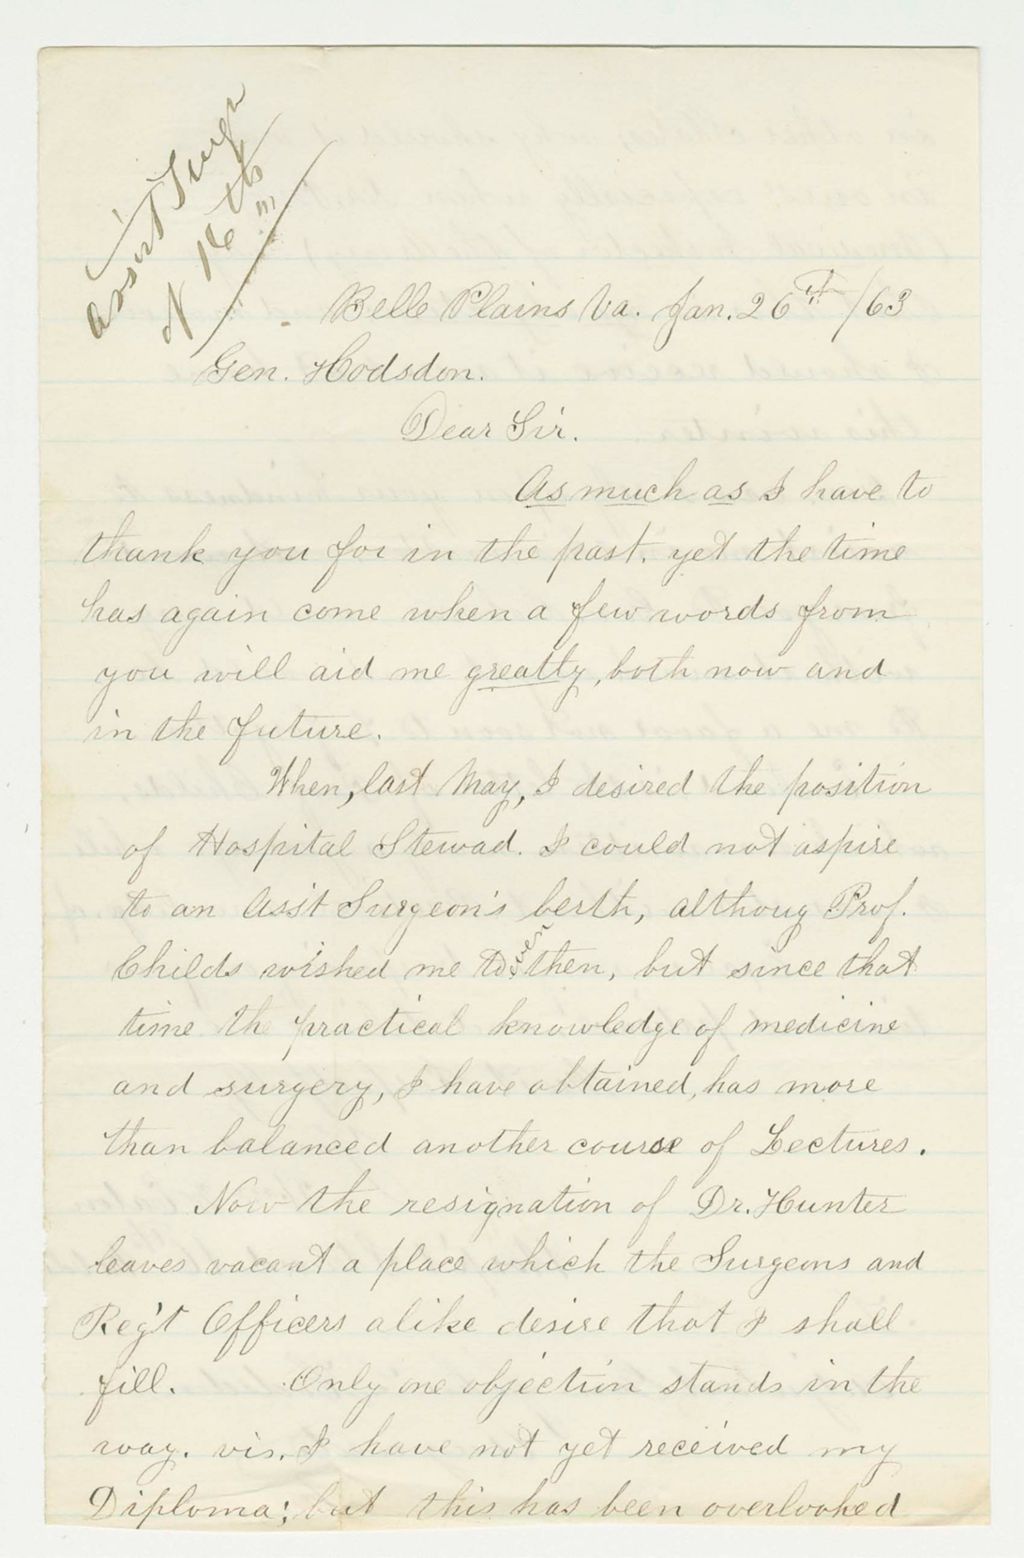 Assist Surgn
N 16th
Belle Plains Va. Jan. 26th /63
Gen. Hodsdon.
Dear Sir.
As much as I have to
thank you for in the past, yet the time
has again come when a few words from
you will aid me greatly, both now and
in the future.
When, last May, I desired the position
of Hospital Stewad. I could not aspire
to an Ass't Surgeon's berth, althoug Prof.
Childs wished me to then, but since that
time th practical knowledge of medicine
and surgery, I have obtained, has more
than balanced another course of Lectures.
Now the resignation of Dr. Hunter
leaves vacant a place which the Surgeons and
Reg't Officers alike desire that I shall
fill. Only one objection stands in the
way. vis. I have not yet received my
Diploma; but this has been overlooked